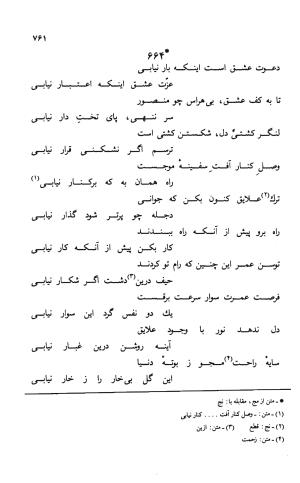 ۷۶۱
*۶۶۴
دعوت عشق است اینکه بار نیابی
عزّت عشق اینکه اعتبار نیابی
تا به کف عشق، بی‌هراس چو منصور
سر ننهی، پای تخت دار نیابی
لنگر کشتیّ دل، شکستن کشتی است
ترسم اگر نشکنی قرار نیابی
وصل کنار آفت سفینهٔ موجست
راه همان به که برکنار نیابی (۱)
ترك (۲) علایق کنون بکن که جوانی
دجله چو پرتر شود گذار نیابی
راه برو پیش از آنکه راه ببندند
کار بکن پیش از آنکه کار نیابی
توسن عمر این چنین که رام تو کردند
حیف درین (۳) دشت اگر شکار نیابی
فرصت عمرت سوار سرعت برقست
یك دو نفس گرد این سوار نیابی
دل ندهد نور با وجود علایق
آینه روشن درین غبار نیابی
سایهٔ راحت (۴) مجو ز بوتهٔ دنیا
این گل بی‌خار را ز خار نیابی
* ـ متن از مج، مقابله با: نج
(۱) ـ متن: ـ وصل کنار آفت .... کنار نیابی
(۲) ـ نج: قطع (۳) ـ متن: ازین
(۴) ـ متن: زحمت